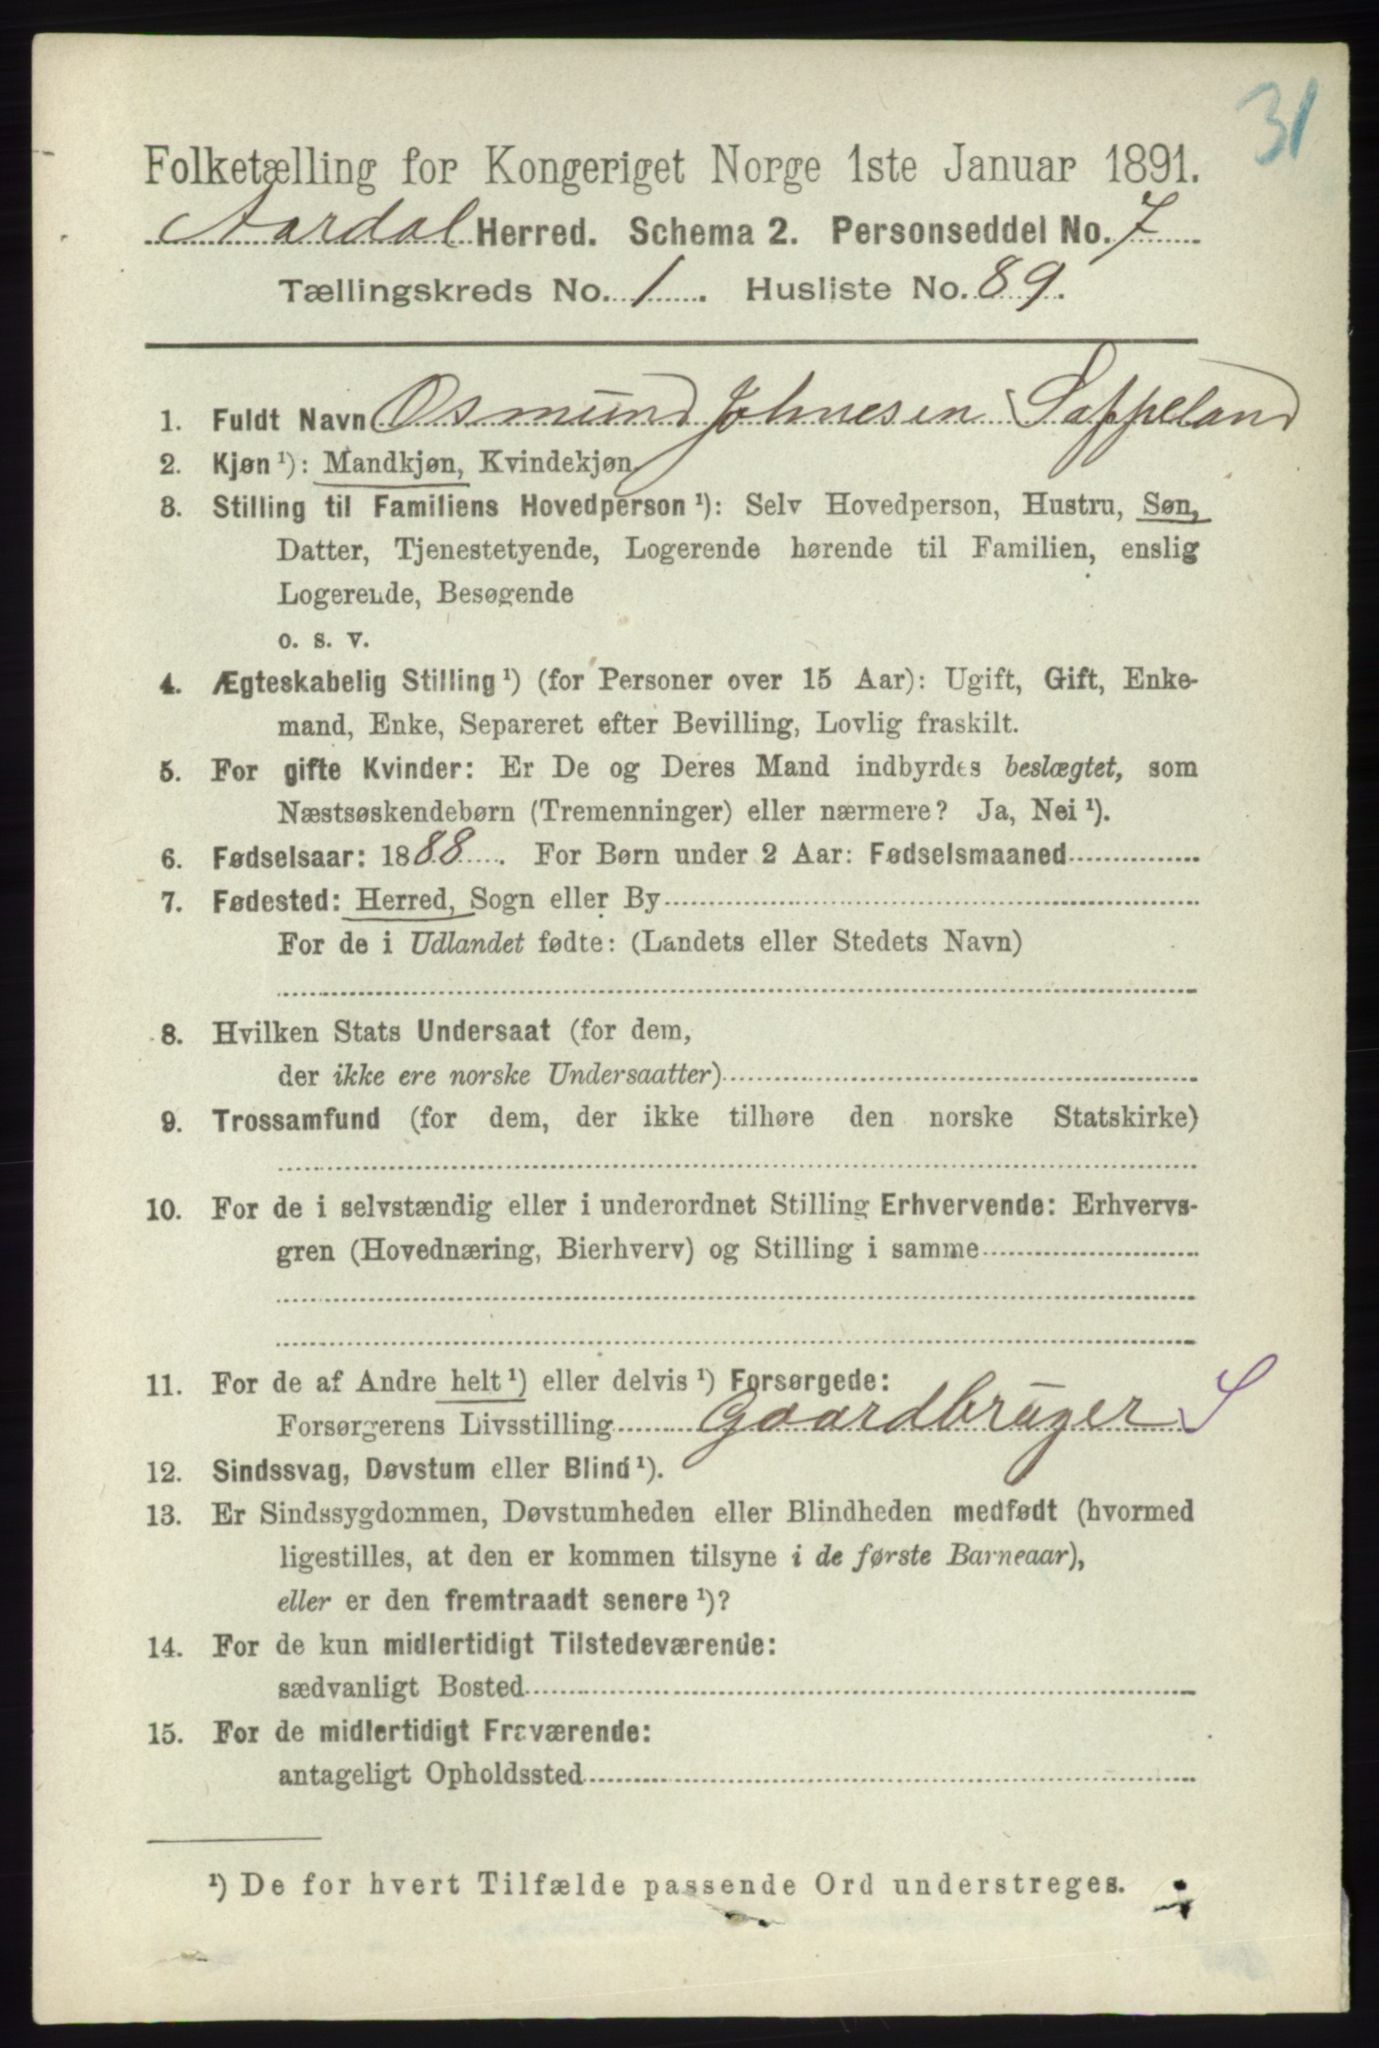 31
Folketælling for Kongeriget Norge 1ste Januar 1891.
Aardal Herred. Schema 2. Personseddel No. 7
Tællingskreds No. 1. Husliste No. 89.
1. Fuldt Navn Osmund Johnesen Sappeland
2. Kjøn ¹): Mandkjøn, Kvindekjøn.
3. Stilling til Familiens Hovedperson ¹): Selv Hovedperson, Hustru, Søn,
Datter, Tjenestetyende, Logerende hørende til Familien, enslig
Logerende, Besøgende
o. s. v.
4. Ægteskabelig Stilling ¹) (for Personer over 15 Aar): Ugift, Gift, Enke-
mand, Enke, Separeret efter Bevilling, Lovlig fraskilt.
5. For gifte Kvinder: Er De og Deres Mand indbyrdes beslægtet, som
Næstsøskendebørn (Tremenninger) eller nærmere? Ja, Nei ¹).
6. Fødselsaar: 1888. For Børn under 2 Aar: Fødselsmaaned
7. Fødested: Herred, Sogn eller By
For de i Udlandet fødte: (Landets eller Stedets Navn)
8. Hvilken Stats Undersaat (for dem,
der ikke ere norske Undersaatter)
9. Trossamfund (for dem, der ikke tilhøre den norske Statskirke)
10. For de i selvstændig eller i underordnet Stilling Erhvervende: Erhvervs-
gren (Hovednæring, Bierhverv) og Stilling i samme
11. For de af Andre helt ¹) eller delvis ¹) Forsørgede:
Forsørgerens Livsstilling Gaardbruger S
12. Sindssvag, Døvstum eller Blind ¹).
13. Er Sindssygdommen, Døvstumheden eller Blindheden medfødt (hvormed
ligestilles, at den er kommen tilsyne i de første Barneaar),
eller er den fremtraadt senere ¹)?
14. For de kun midlertidigt Tilstedeværende:
sædvanligt Bosted
15. For de midlertidigt Fraværende:
antageligt Opholdssted
¹) De for hvert Tilfælde passende Ord understreges.